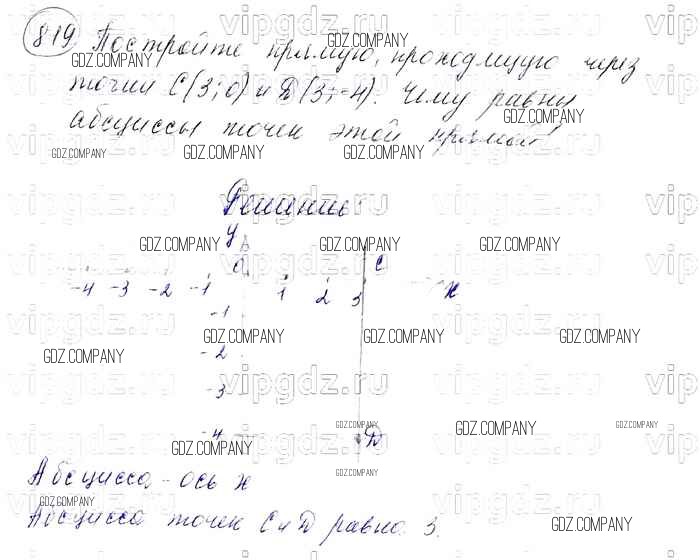 819 Постройте прямую, проходящую через
точки C(3; 0) и D(3; -4). Чему равны
абсциссы точек этой прямой
Решение
y
0 C
-4 -3 -2 -1 1 2 3 x
-1
-2
-3
-4 D
Абсцисса - ось x
Абсцисса точек C и D равна 3.
vipgdz.ru
GDZ.COMPANY